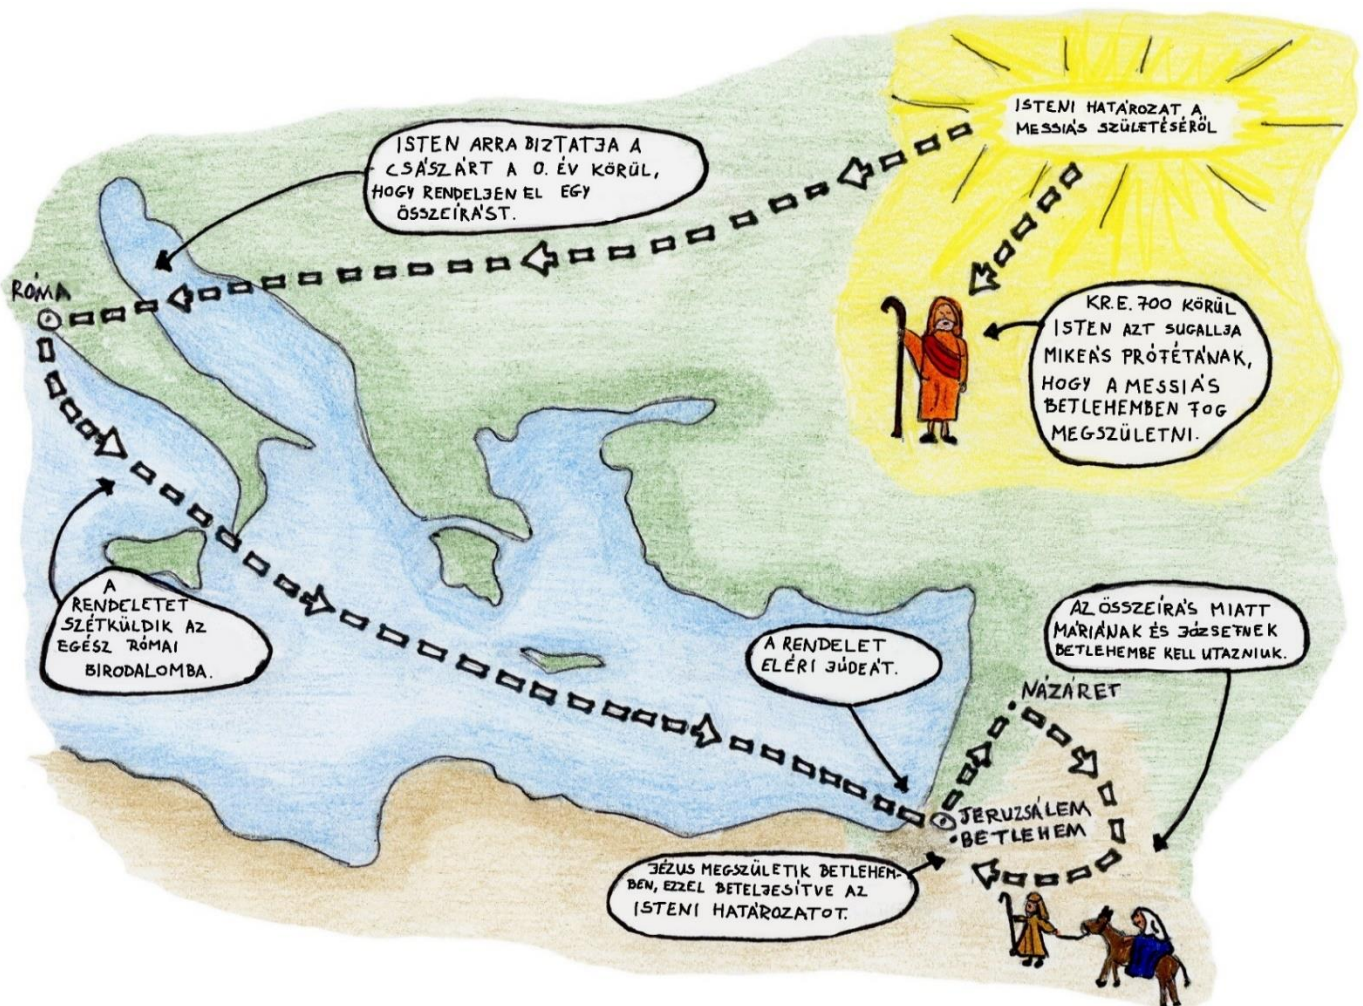 ISTENI HATÁROZAT A
MESSIÁS SZÜLETÉSÉRŐL
ISTEN ARRA BIZTATJA A
CSÁSZÁRT A 0. ÉV KÖRÜL,
HOGY RENDELJEN EL EGY
ÖSSZEÍRÁST.
RÓMA
KR.E. 700 KÖRÜL
ISTEN AZT SUGALLJA
MIKEÁS PRÓFÉTÁNAK,
HOGY A MESSIÁS
BETLEHEMBEN FOG
MEGSZÜLETNI.
A
RENDELETET
SZÉTKÜLDIK AZ
EGÉSZ RÓMAI
BIRODALOMBA.
A RENDELET
ELÉRI JÚDEÁT.
AZ ÖSSZEÍRÁS MIATT
MÁRIÁNAK ÉS JÓZSEFNEK
BETLEHEMBE KELL UTAZNIUK.
NÁZÁRET
JERUZSÁLEM
BETLEHEM
JÉZUS MEGSZÜLETIK BETLEHEM-
BEN, EZZEL BETELJESÍTVE AZ
ISTENI HATÁROZATOT.